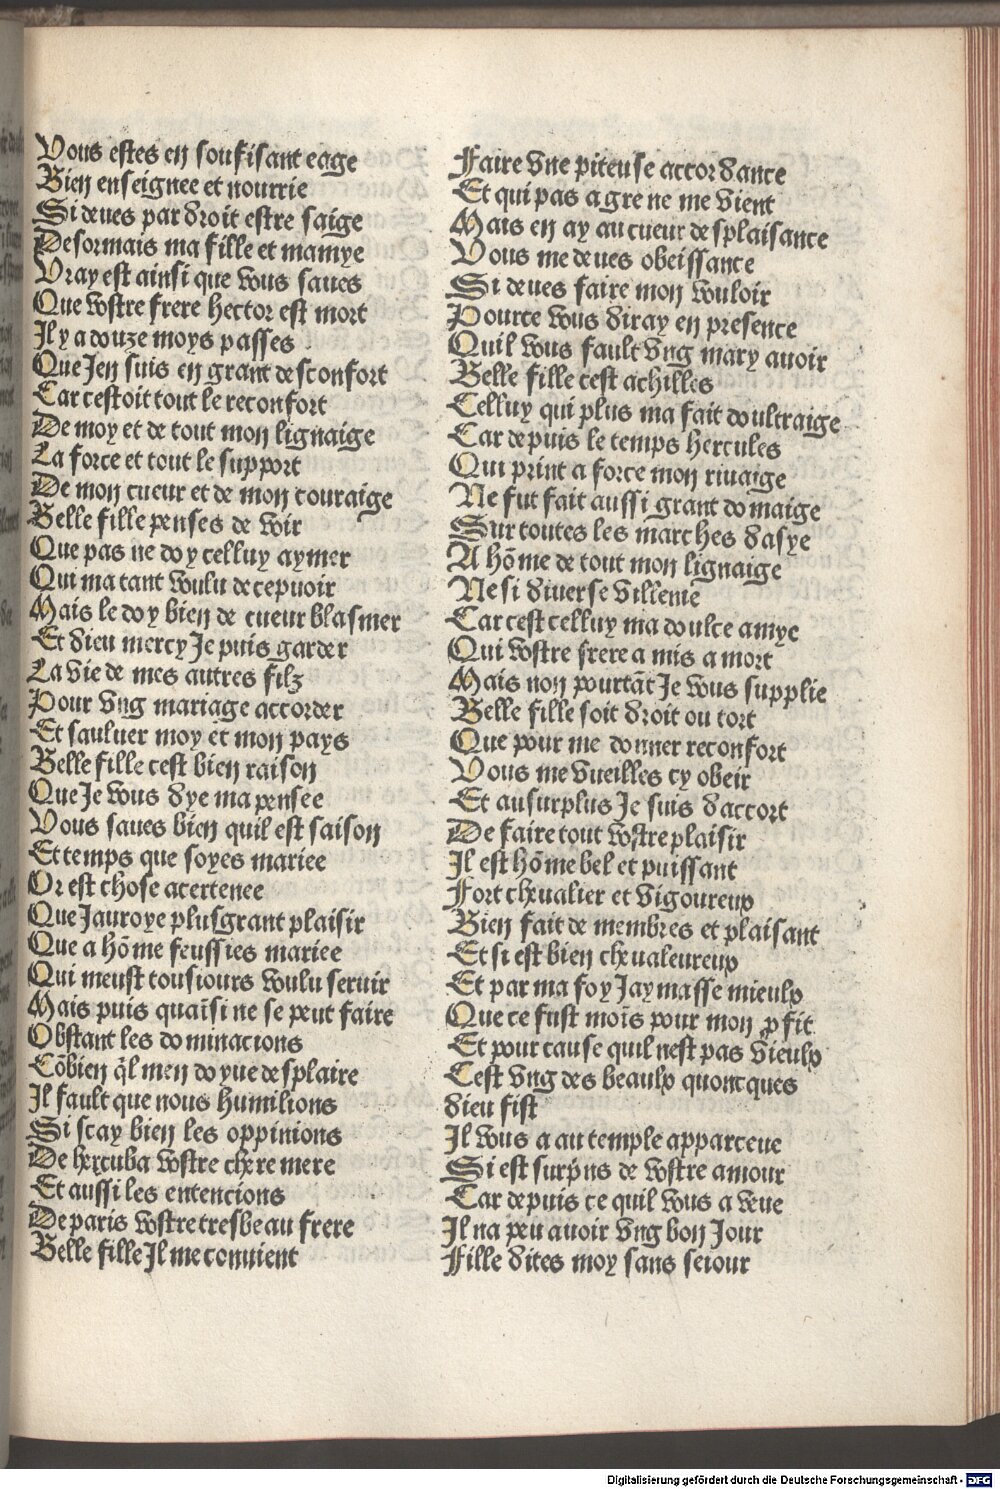 Vous estes en soufisant eage
Bien enseignee et nourrie
Si deues par droit estre saige
Desormais ma fille et mamye
Vray est ainsi que vous saues
Que vostre frere hector est mort
Il y a douze moys passes
Que Jen suis en grant desconfort
Car cestoit tout le reconfort
De moy et de tout mon lignaige
La force et tout le support
De mon cueur et de mon couraige
Belle fille penses de voir
Que pas ne doy celluy aymer
Qui ma tant voulu decepuoir
Mais le doy bien de cueur blasmer
Et dieu mercy Je puis garder
La vie de mes autres filz
Pour vng mariage accorder
Et sauluer moy et mon pays
Belle fille cest bien raison
Que Je vous dye ma pensee
Vous saues bien quil est saison
Et temps que soyes mariee
Or est chose acertenee
Que Jauroye plusgrant plaisir
Que a hõme feussies mariee
Qui meust tousiours voulu seruir
Mais puis quaĩsi ne se peut faire
Obstant les dominacions
Cõbien q̃l men doyue desplaire
Il fault que nous humilions
Si scay bien les oppinions
De hercuba vostre chere mere
Et aussi les entencions
De paris vostre tresbeau frere
Belle fille Il me conuient
Faire vne piteuse accordance
Et qui pas a gre ne me vient
Mais en ay au cueur desplaisance
Vous me deues obeissance
Si deues faire mon vouloir
Pource vous diray en presence
Quil vous fault vng mary auoir
Belle fille cest achilles
Celluy qui plus ma fait doultraige
Car depuis le temps hercules
Qui print a force mon riuaige
Ne fut fait aussi grant domaige
Sur toutes les marches dasye
A hõme de tout mon lignaige
Ne si diuerse vilenie
Car cest celluy ma doulce amye
Qui vostre frere a mis a mort
Mais non pourtãt Je vous supplie
Belle fille soit droit ou tort
Que pour me donner reconfort
Vous me vueilles cy obeir
Et ausurplus Je suis daccort
De faire tout vostre plaisir
Il est hõme bel et puissant
Fort cheualier et vigoureux
Bien fait de membres et plaisant
Et si est bien cheualeureux
Et par ma foy Jaymasse mieulx
Que ce fust moĩs pour mon ꝓfit
Et pour cause quil nest pas vieulx
Cest vng des beaulx quoncques
dieu fist
Il vous a au temple apparceue
Si est surp̃ns de vostre amour
Car depuis ce quil vous a veue
Il na peu auoir vng bon Jour
Fille dites moy sans seiour
Digitalisierung gefördert durch die Deutsche Forschungsgemeinschaft - DFG